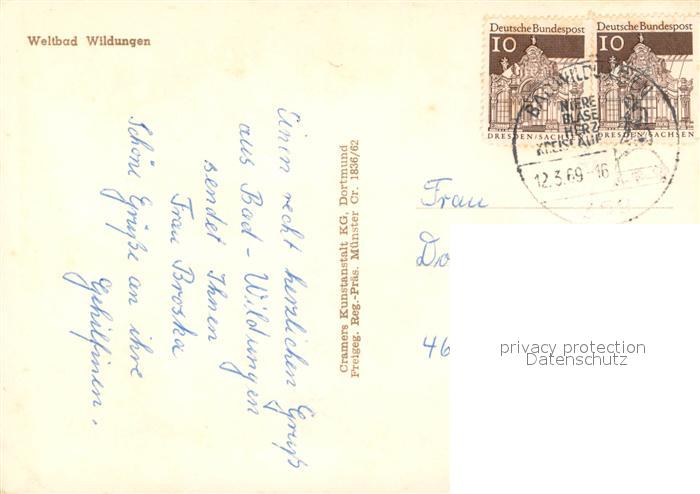 Weltbad Wildungen
Einen recht herzlichen Gruß
aus Bad-Wildungen
sendet Ihnen
Frau Broska
Schöne Grüße an ihre
Gehilfinen.
Cramers Kunstanstalt KG, Dortmund
Freigeg. Reg.-Präs. Münster Cr. 1836/62
Deutsche Bundespost
10
DRESDEN/SACHSEN
Deutsche Bundespost
10
DRESDEN/SACHSEN
BAD WILDUNGEN
NIERE
BLASE
HERZ
KREISLAUF
12.3.69-16
Frau
Do
46
privacy protection
Datenschutz